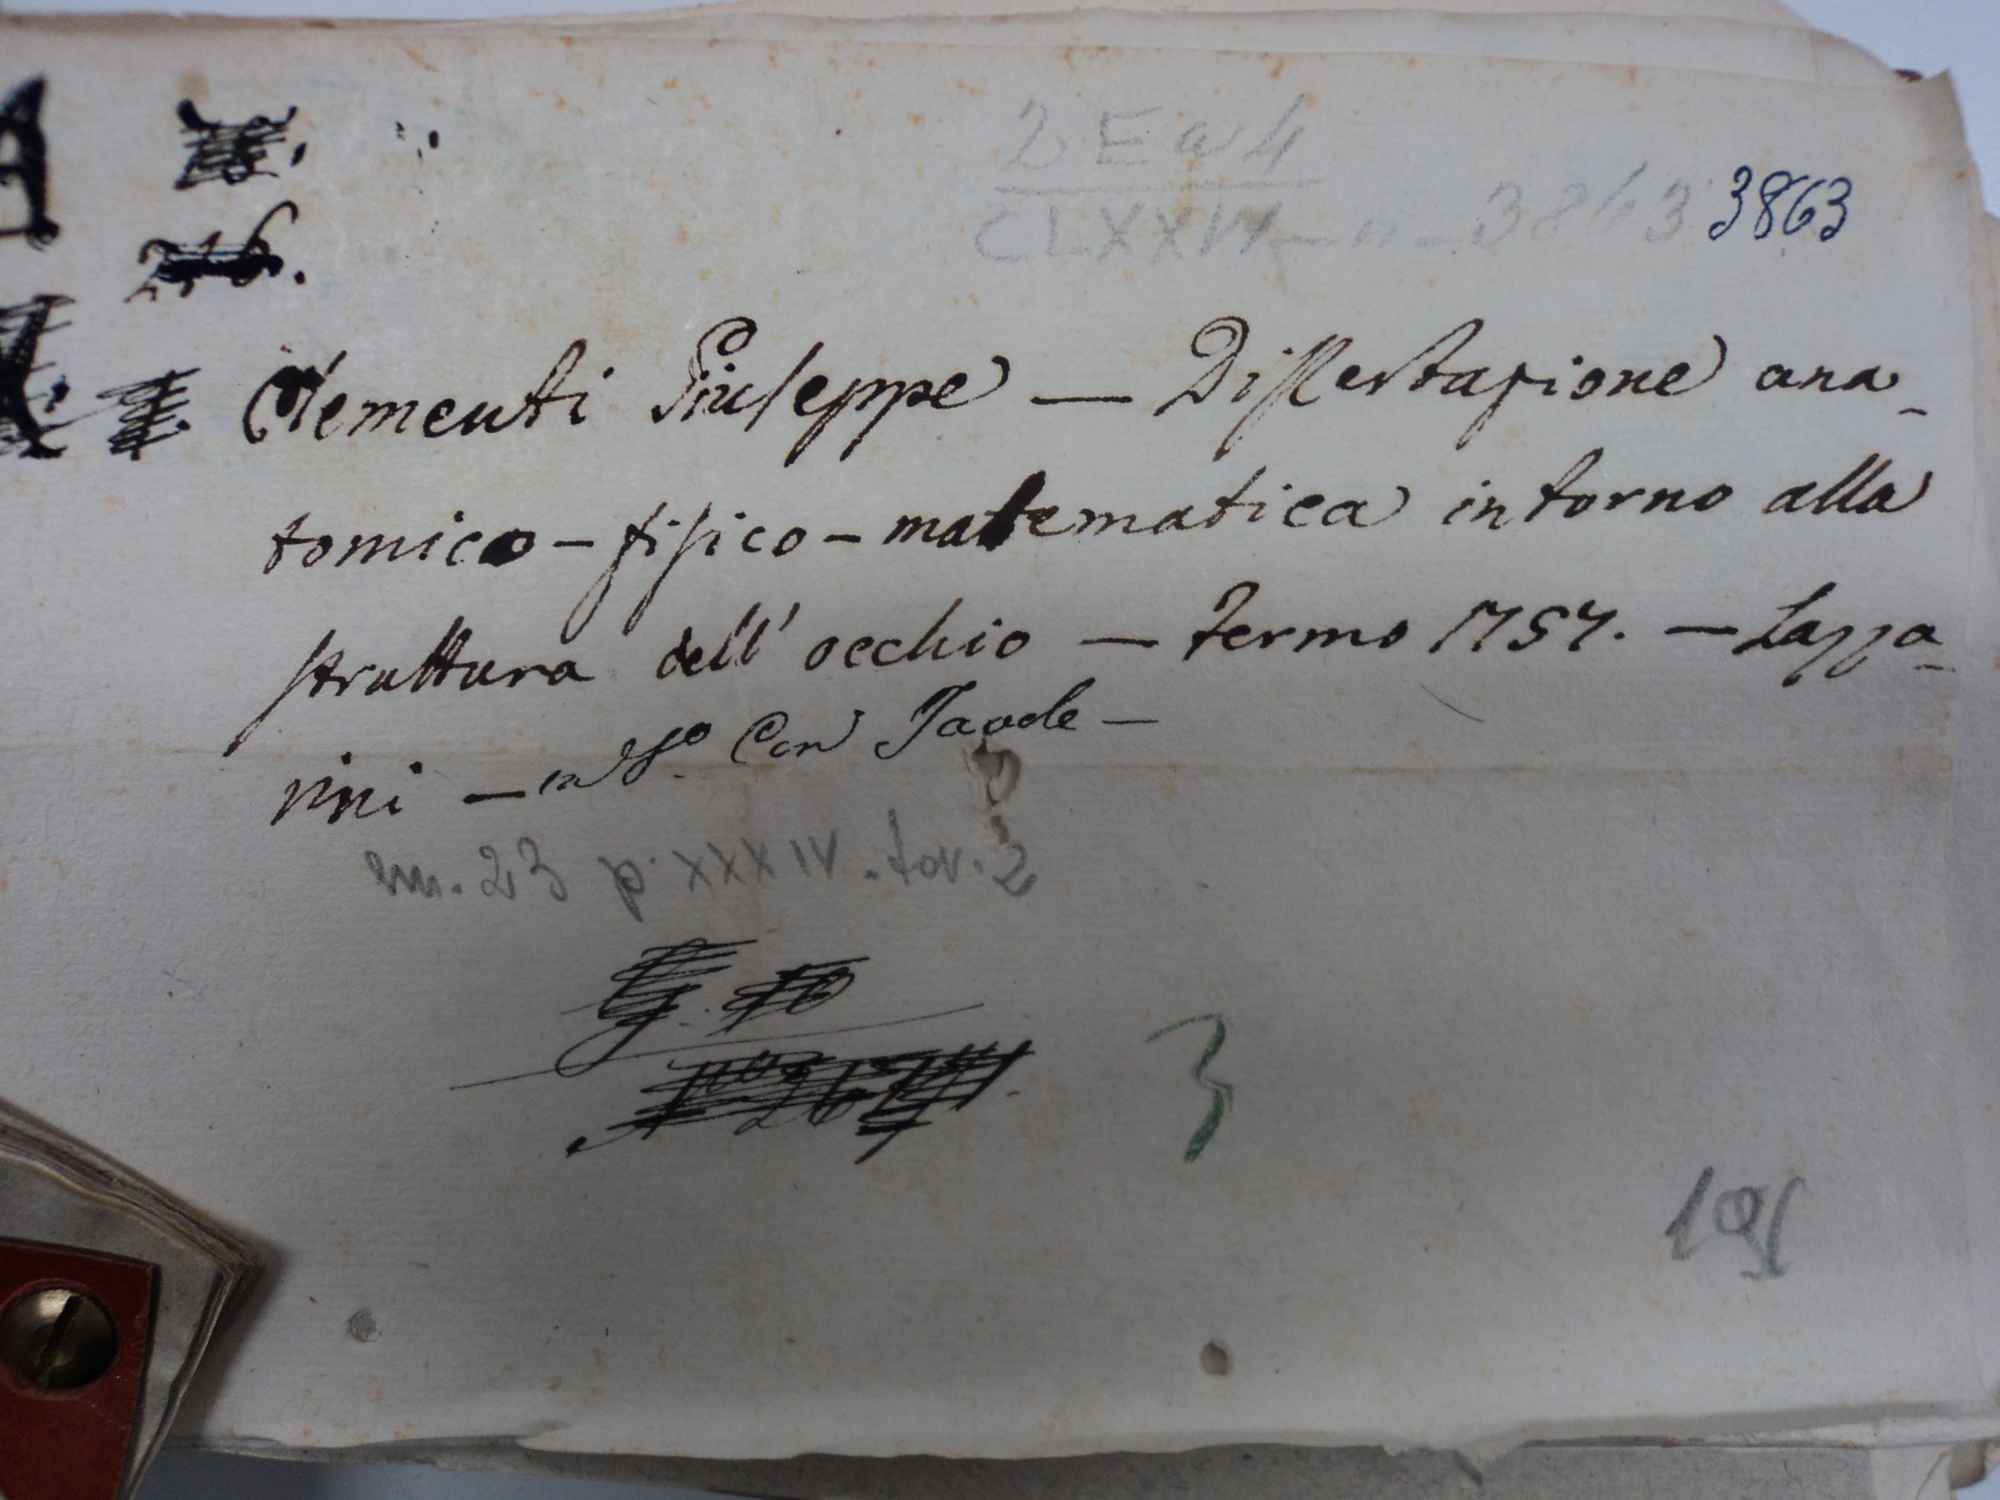 2 E a 4
CLXXIV - n - 3863 3863
216.
Clementi Giuseppe — Dissertazione ana-
tomico - fisico - matematica intorno alla
struttura dell' occhio — Fermo 1757. — Lazza-
rini — in 8º. Con Tavole —
m. 23 p. XXXIV. tav. 2
3